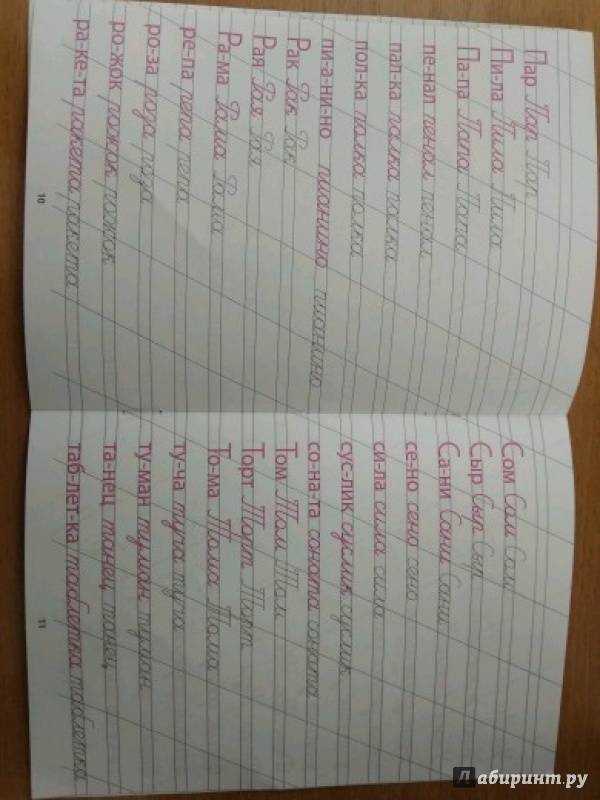 Пар Пар Пар
Пи-ла Пила Пила
Па-па Папа Папа
пе-нал пенал пенал
пал-ка палка палка
пол-ка полка полка
пи-а-ни-но пианино пианино
Рак Рак Рак
Рая Рая Рая
Ра-ма Рама Рама
ре-па репа репа
ро-за роза роза
ро-жок рожок рожок
ра-ке-та ракета ракета
10
Сом Сом Сом
Сыр Сыр Сыр
Са-ни Сани Сани
се-но сено сено
си-ла сила сила
сус-лик суслик суслик
со-на-та соната соната
Том Том Том
Торт Торт Торт
То-ма Тома Тома
ту-ча туча туча
ту-ман туман туман
та-нец танец танец
таб-лет-ка таблетка таблетка
11
Лабиринт.ру